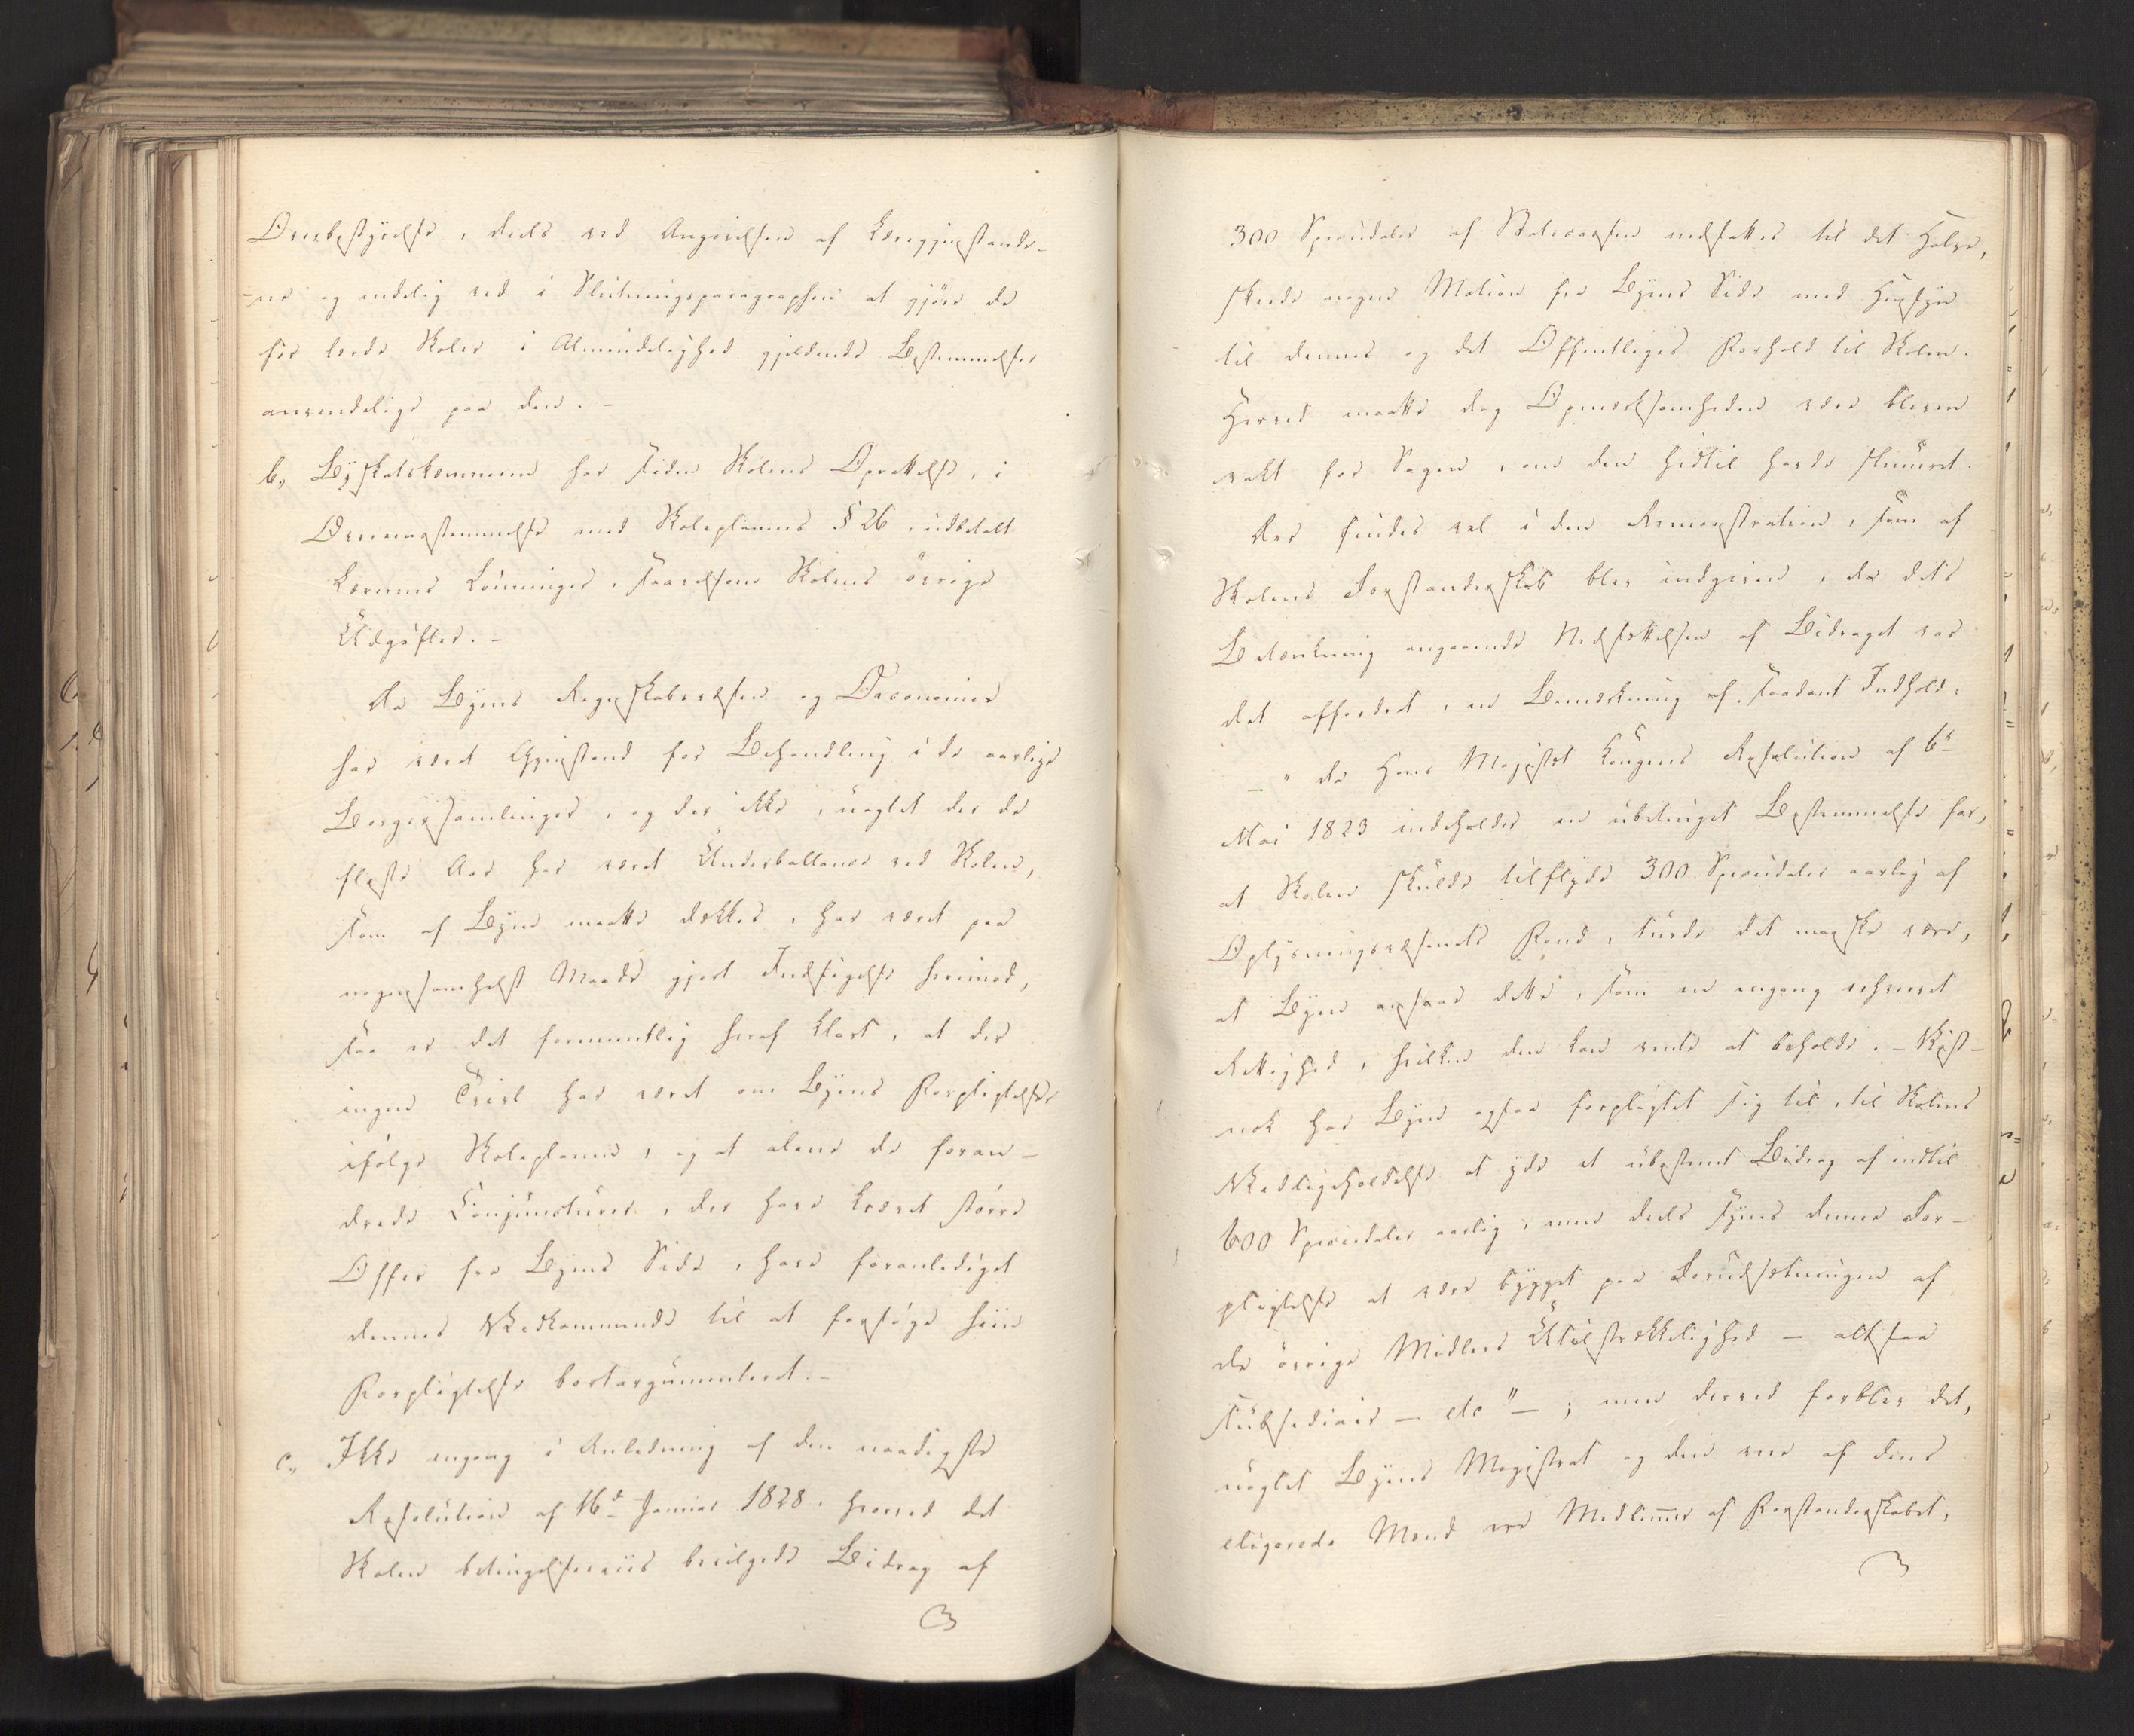 Overbestyrelse, deels ved Angivelsen af Læregjenstande-
-ne og endelig ved i Slutningsparagraphen at gjöre de
for lærde Skoler i Almindelighed gjeldende Bestemmelser
anvendelige paa den. -
b., Byskatskæmneren har siden Skolens Oprettelse, i
Overeensstemmelse med Skoleplanens § 26, udbetalt
Lærernes Lönninger, saavelsom Skolens övrige
Udgifter. -
Da Byens Regnskabsvæsen og Oeconomie
har været Gjenstand for Behandling i de aarlige
Borgersamlinger, og der ikke, uagtet der de
fleste Aar har været Underballance ved Skolen,
som af Byen maatte dækkes, har været paa
nogensomhelst Maade gjort Indsigelse herimod,
saa er det formeentlig heraf klart, at der
ingen Tvivl har været om Byens Forpligtelse
ifölge Skoleplanen, og at alene de foran-
drede Conjuncturer, der have krævet större
Offer fra Byens Side, have foranlediget
dennes Vedkommende til at forsöge hiin
Forpligtelse bortargumenteret. -
c., Ikke engang i Anledning af den naadigste
Resolution af 16d Januar 1828, hvorved det
Skolen betingelsesviis bevilgede Bidrag af
300 Speciedaler af Statscassen nedsattes til det Halve,
skeede nogen Motion fra Byens Side med Hensyn
til dennes og det Offentliges Forhold til Skolen.
Herved maatte dog Opmærksomheden være bleven
vakt for Sagen, om den hidtil havde slumret.
Der findes vel i den Remonstration, som af
Skolens Forstanderskab blev indgiven, da dets
Betænkning angaaende Nedsættelsen af Bidraget var
det affordret, en Bemærkning af saadant Indhold:
- "da Hans Majestæt Kongens Resolution af 6te
Mai 1823 indeholder en ubetinget Bestemmelse for,
at Skolen skulde tilflyde 300 Speciedaler aarlig af
Oplysningsvæsenets Fond, turde det maaskee være,
at Byen ansaae dette, som en engang erhvervet
Rettighed, hvilken den kan vente at beholde. - Vist-
nok har Byen ogsaa forpligtet sig til, til Skolens
Vedligeholdelse at yde et ubestemt Bidrag af indtil
600 Speciedaler aarlig, men deels synes denne For-
pligtelse at være bygget paa Forudsætningen af
de övrige Midlers Utilstrækkelighed - altsaa
subsidiair - etc" - ; men derved forblev det,
uagtet Byens Magistrat og den ene af dens
eligerede Mænd ere Medlemmer af Forstanderskabet,